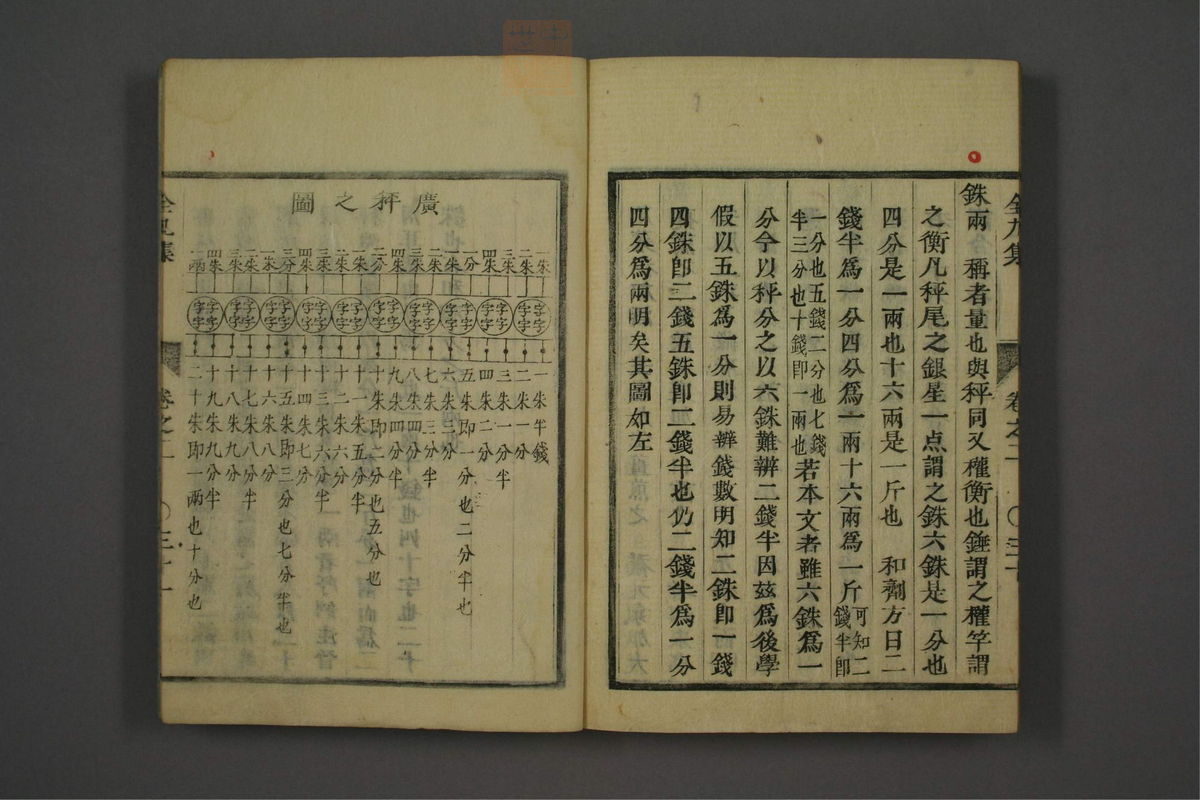 銖兩　稱者量也與秤同又權衡也錘謂之權竿謂
之衡凡秤尾之銀星一点謂之銖六銖是一分也
四分是一兩也十六兩是一斤也　和劑方曰二
錢半爲一分四分爲一兩十六兩爲一斤可知二錢半即
一分也五錢二分也七錢半三分也十錢即一兩也若本文者雖六銖爲一
分今以秤分之以六銖難辨二錢半因玆爲後學
假以五銖爲一分則易辨錢數明知二銖即一錢
四銖即二錢五銖即二錢半也仍二錢半爲一分
四分爲兩明矣其圖如左
全九集
廣秤之圖
一朱半錢
二朱一分
三朱一分半
四朱二分
五朱即一分也二分半也
六朱三分
七朱三分半
八朱四分
九朱四分半
十朱即二分也五分也
十一朱五分半
十二朱六分
十三朱六分半
十四朱七分
十五朱即三分也七分半也
十六朱八分
十七朱八分半
十八朱九分
十九朱九分半
二十朱即一兩也十分也
全九集